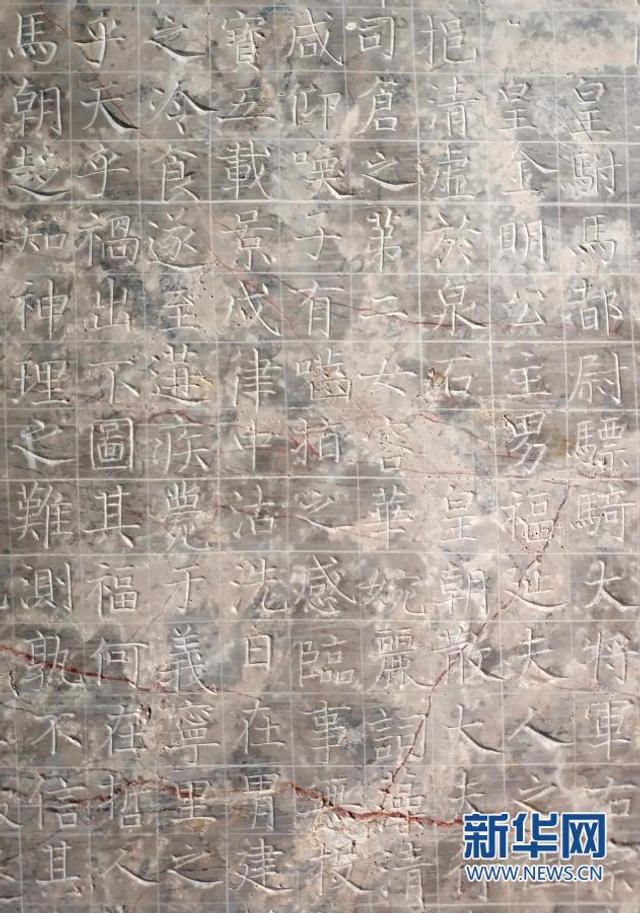 皇駙馬都尉驃騎大將軍右
皇金明公主男福延夫人之
挹清虛於泉石皇朝散大夫
司倉之第二女容華婉麗詞藻清
咸仰喚子有嚙指之感臨事無投
寶五載景戌律中沽洗日在胃建
之冷食遂至遘疾薨于義寧里之
乎天乎禍出不圖其福何在哲人
馬朝趍知神理之難測孰不信其
新华网
WWW.NEWS.CN